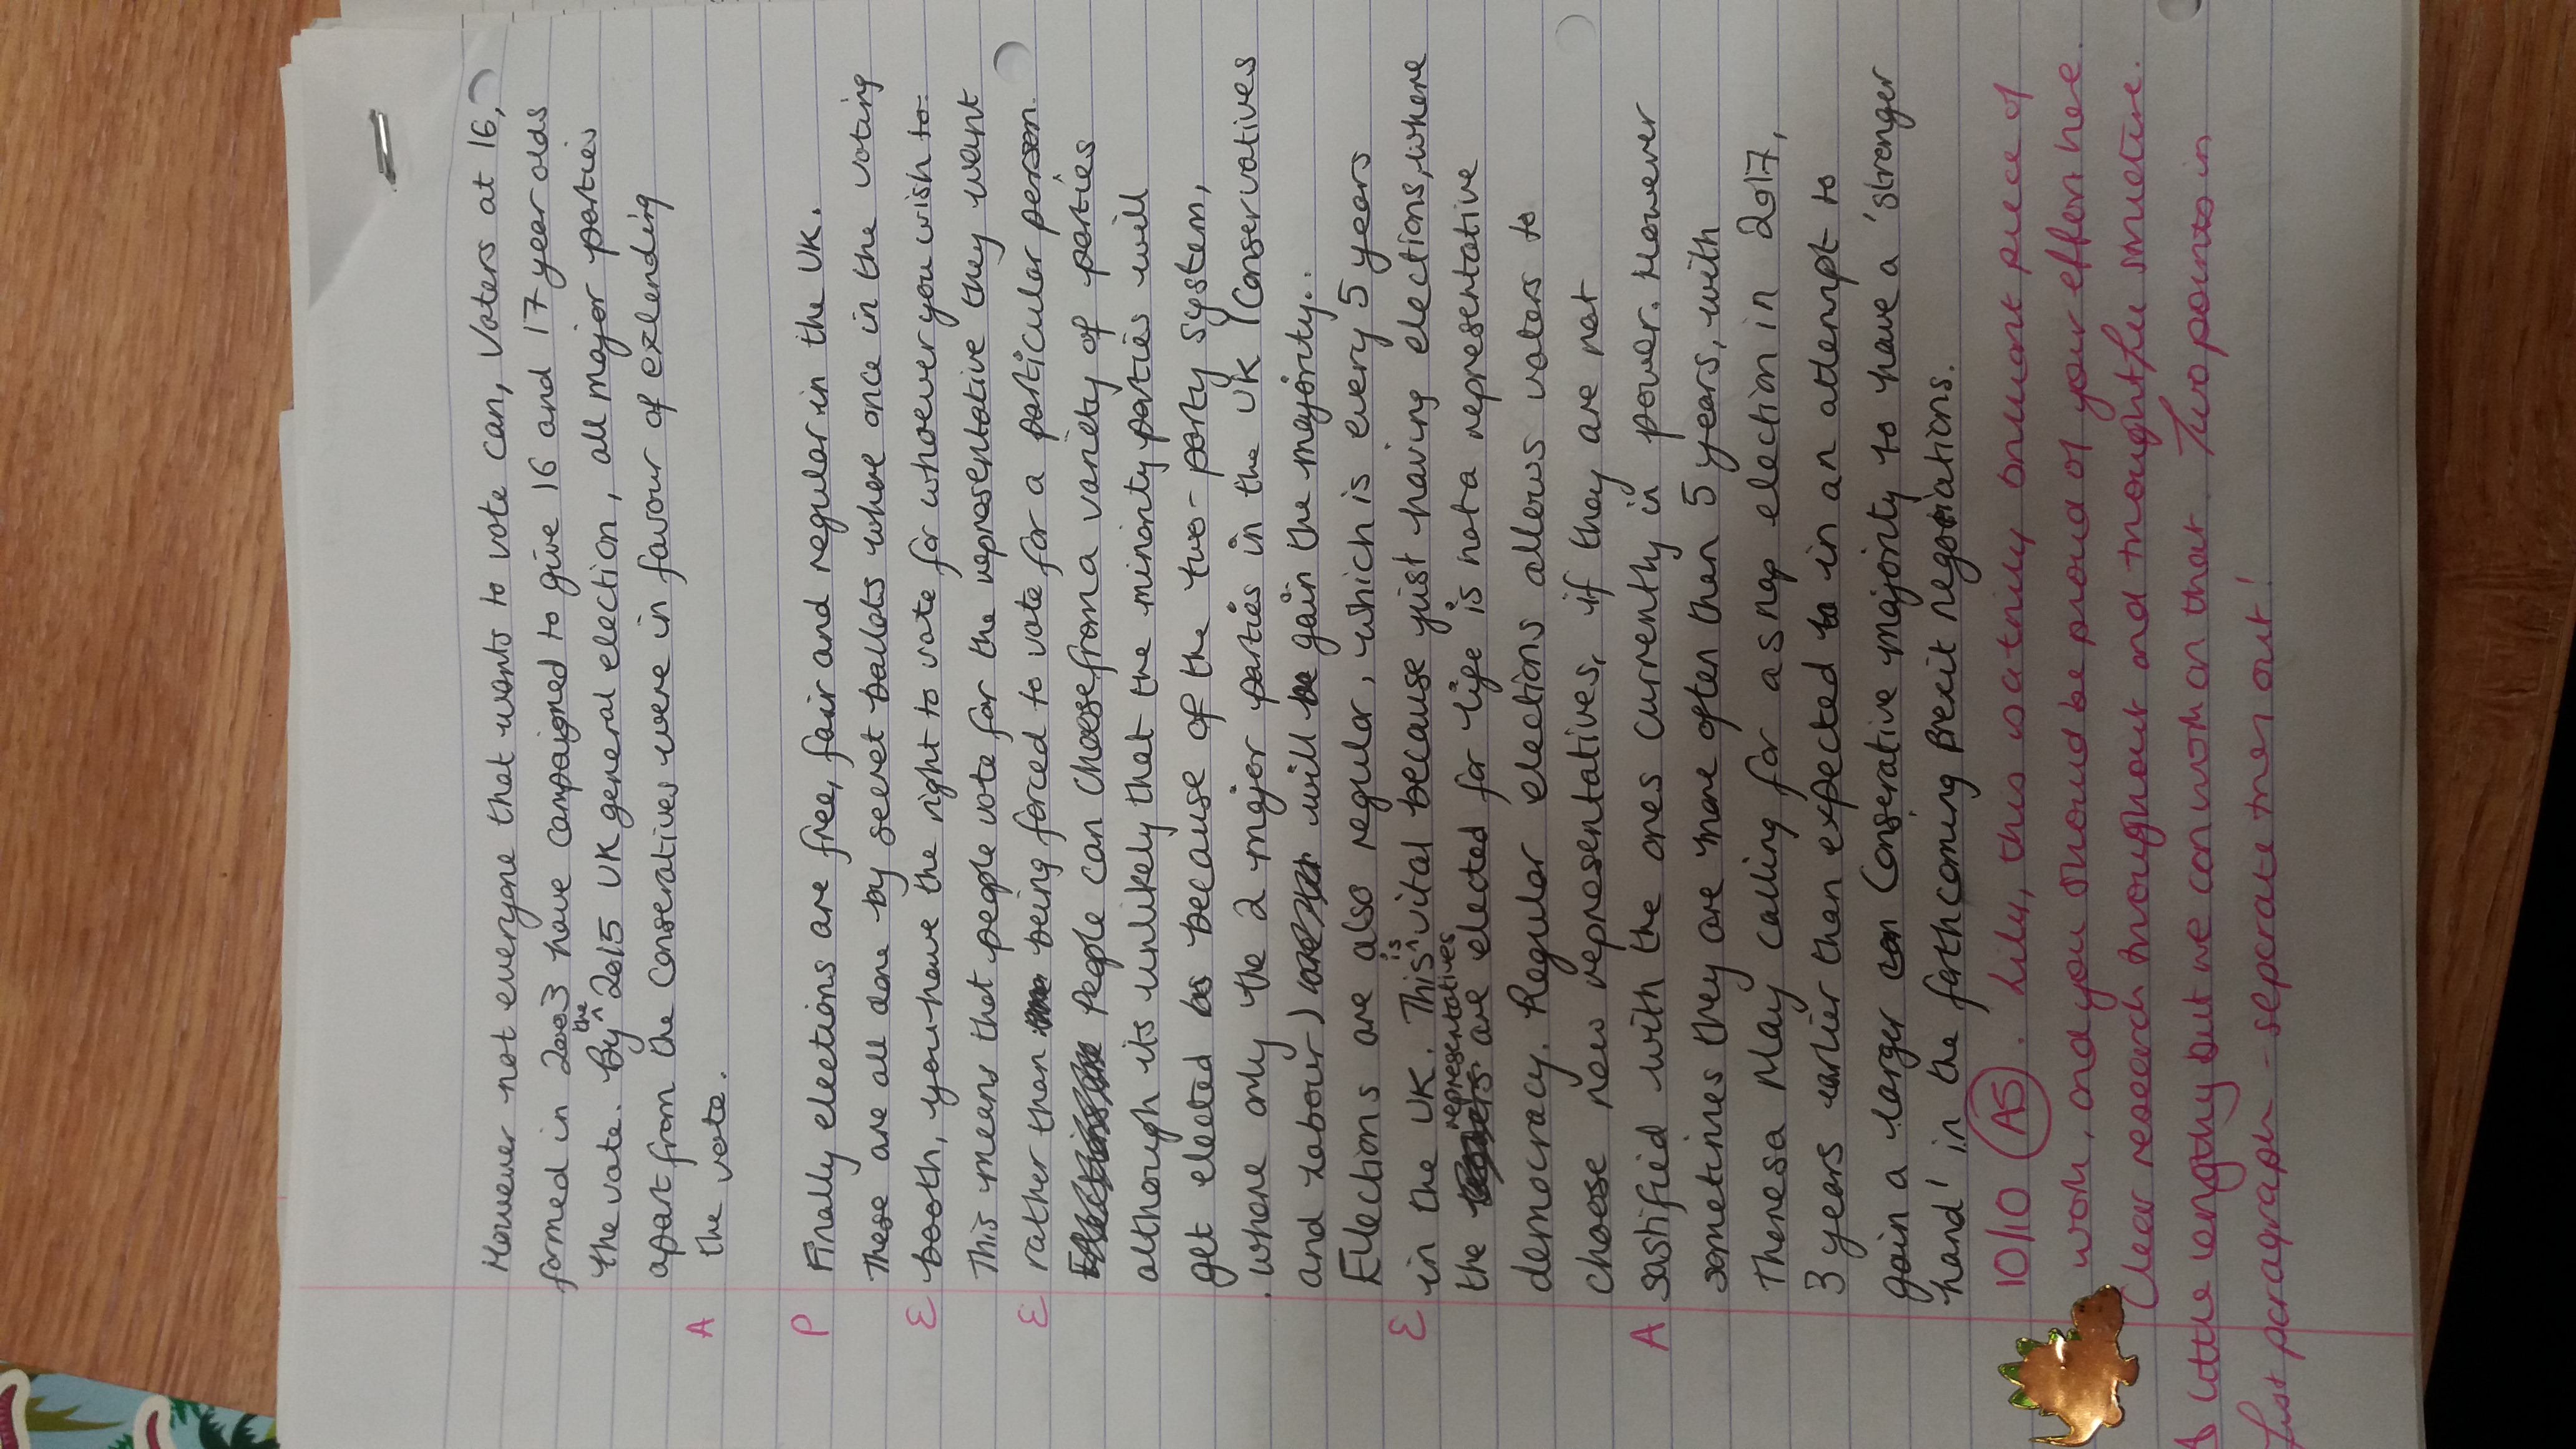 However not everyone that wants to vote can, Voters at 16,
formed in 2003 have campaigned to give 16 and 17 year olds
the vote. By the 2015 UK general election, all major parties
apart from the Conseratives were in favour of extending
A the vote.
P Finally elections are free, fair and regular in the UK.
These are all done by secret ballots where once in the voting
E booth, you have the right to vote for whoever you wish to.
This means that people vote for the representative they want
E rather than being forced to vote for a particular person.
People can choose from a variety of parties
although its unlikely that the minority parties will
get elected because of the two-party system,
where only the 2 major parties in the UK (Conservatives
and Labour) will gain the majority.
Elections are also regular, which is every 5 years
E in the UK. This is vital because just having elections, where
the representatives are elected for life is not a representative
democracy. Regular elections allows voters to
choose new representatives, if they are not
A sastified with the ones currently in power. However
sometimes they are more often than 5 years, with
Theresa May calling for a snap election in 2017,
3 years earlier than expected in an attempt to
gain a larger Conserative majority to have a 'stronger
hand' in the forthcoming Brexit negotiations.
10/10 (A5). Lily, this is a truly brilliant piece of
work, and you should be proud of your effort here.
Clear research throughout and thoughtful structure.
A little lengthy but we can work on that. Two points in
last paragraph - separate them out!